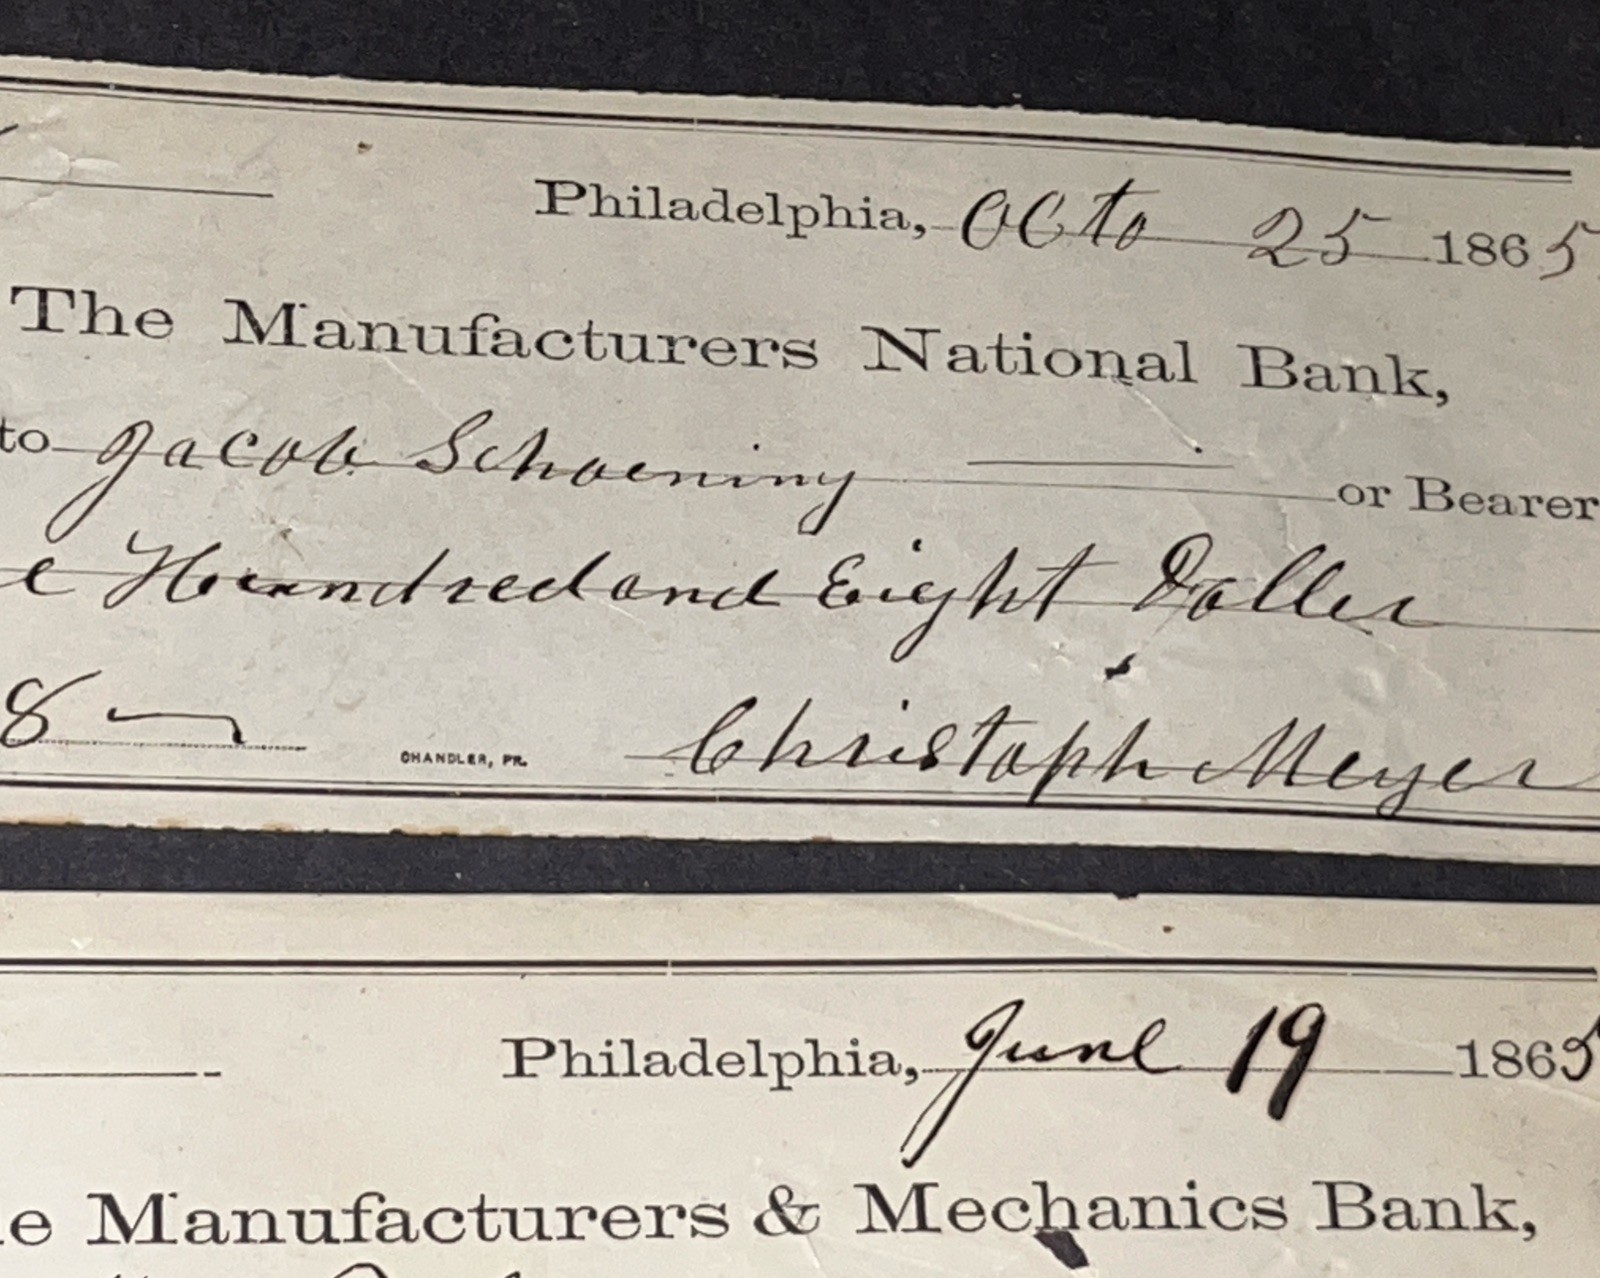 Philadelphia, Octo 25 1865
The Manufacturers National Bank,
to Jacob Schoening or Bearer
e Hundred and Eight Doller
8
CHANDLER, PR. Christoph Meyer
Philadelphia, June 19 1865
e Manufacturers & Mechanics Bank,